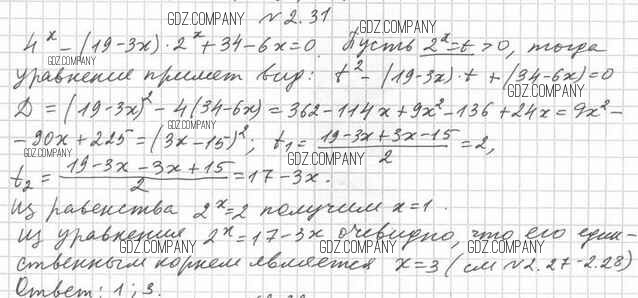 GDZ.COMPANY №2.31 GDZ.COMPANY
4^x - (19-3x)·2^x + 34-6x=0. Пусть 2^x=t>0, тогда
GDZ.COMPANY GDZ.COMPANY
уравнение примет вид: t^2 - (19-3x)·t + (34-6x)=0
D = (19-3x)^2 - 4(34-6x) = 362-114x+9x^2-136+24x=9x^2-
GDZ.COMPANY
-90x+225=(3x-15)^2; t₁= (19-3x+3x-15)/2 =2,
GDZ.COMPANY GDZ.COMPANY
t₂ = (19-3x-3x+15)/2 =17-3x.
Из равенства 2^x=2 получим x=1.
Из уравнения 2^x=17-3x очевидно, что его един-
GDZ.COMPANY GDZ.COMPANY GDZ.COMPANY
ственным корнем является x=3 (см №2.27-2.28)
Ответ: 1; 3.